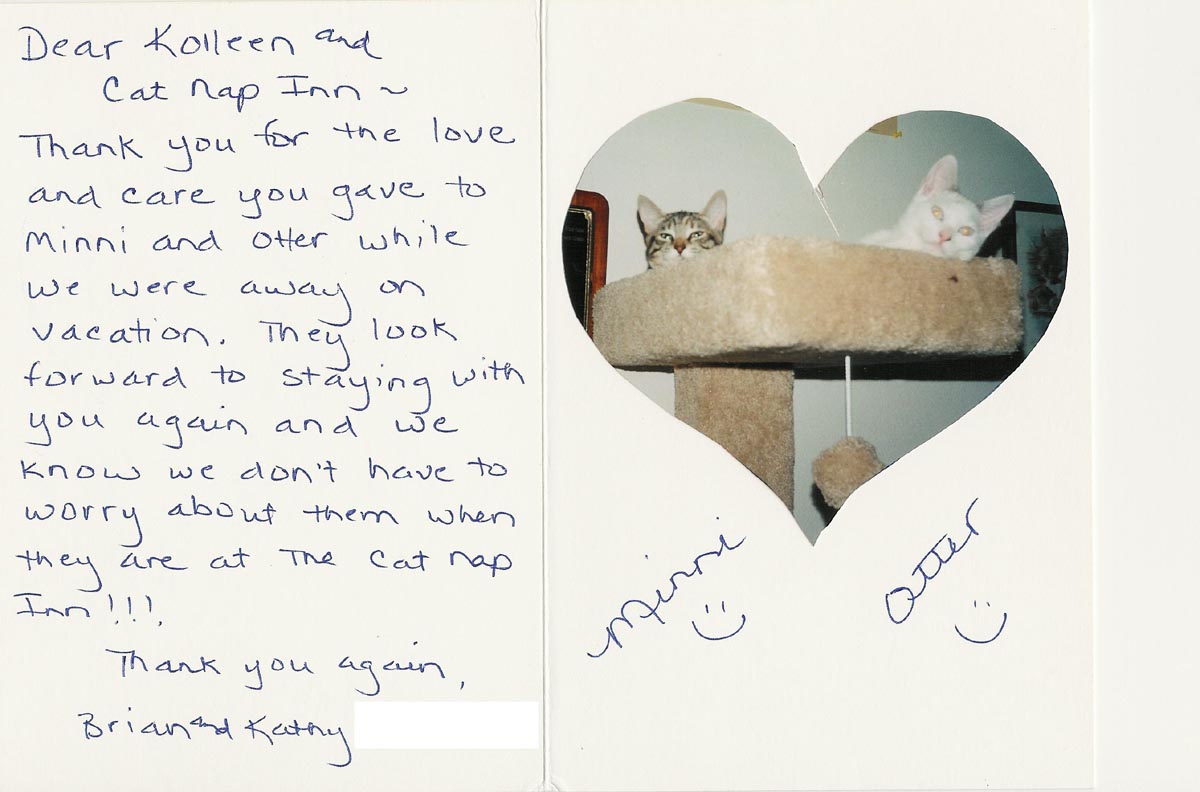 Dear Kolleen and
Cat Nap Inn ~
Thank you for the love
and care you gave to
Minni and Otter while
we were away on
vacation. They look
forward to staying with
you again and we
know we don't have to
worry about them when
they are at The Cat Nap
Inn!!!
Thank you again,
Brian and Kathy
Minni
Otter